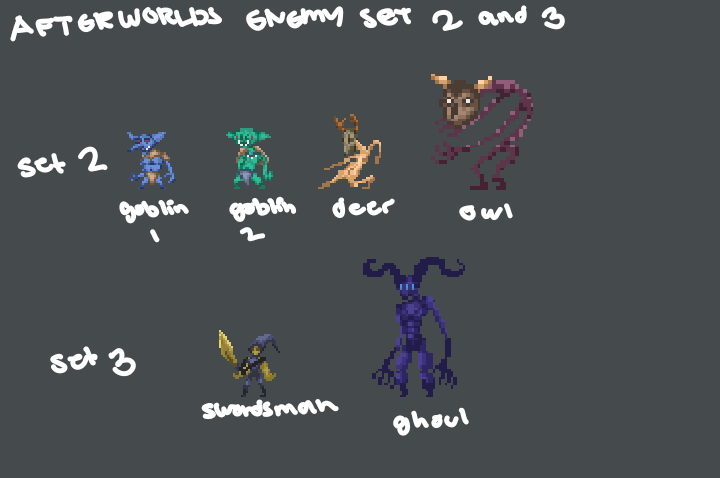 AFTERWORLDS ENEMY SET 2 and 3
set 2
goblin 1
goblin 2
deer
owl
set 3
swordsman
ghoul